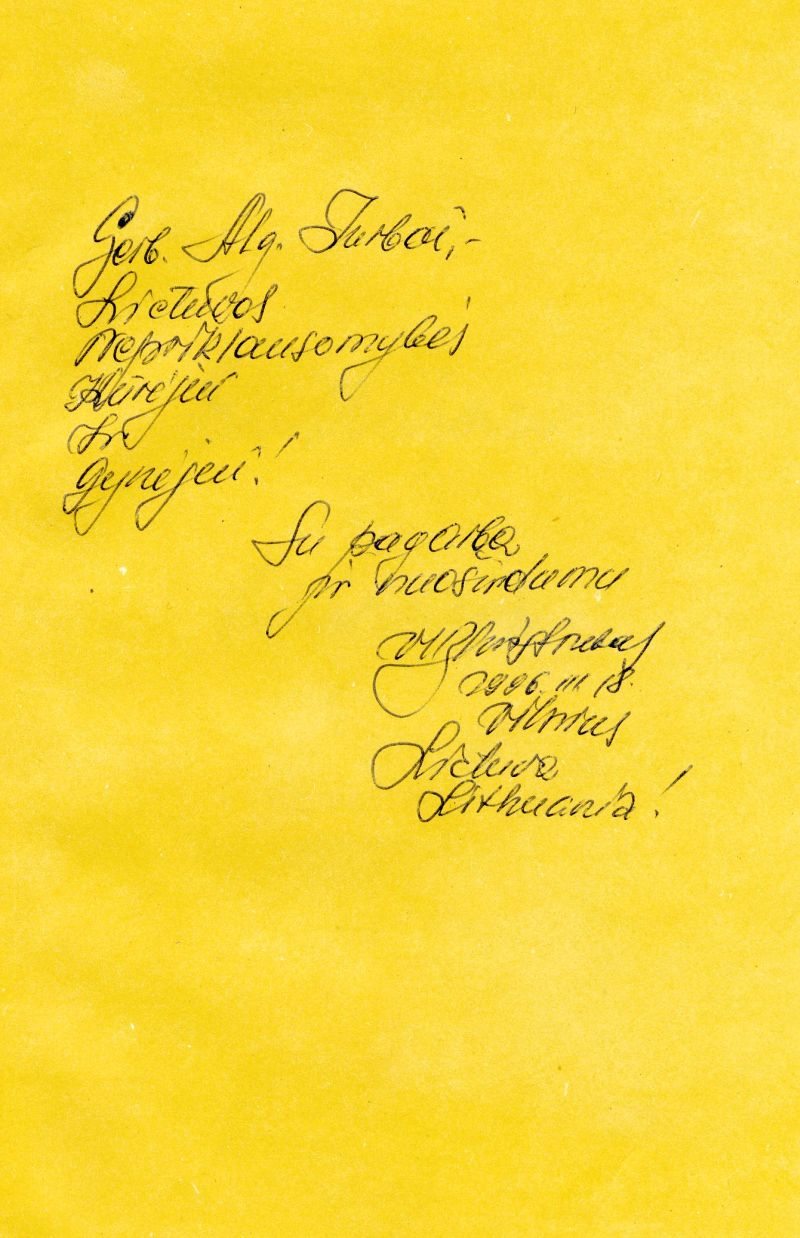 Gerb. Alg. Jurbai,-
Lietuvos
Nepriklausomybės
Kūrėjui
Ir
Gynėjui!
Su pagarba
ir nuoširdumu
1996. III. 18.
Vilnius
Lietuva
Lithuania!